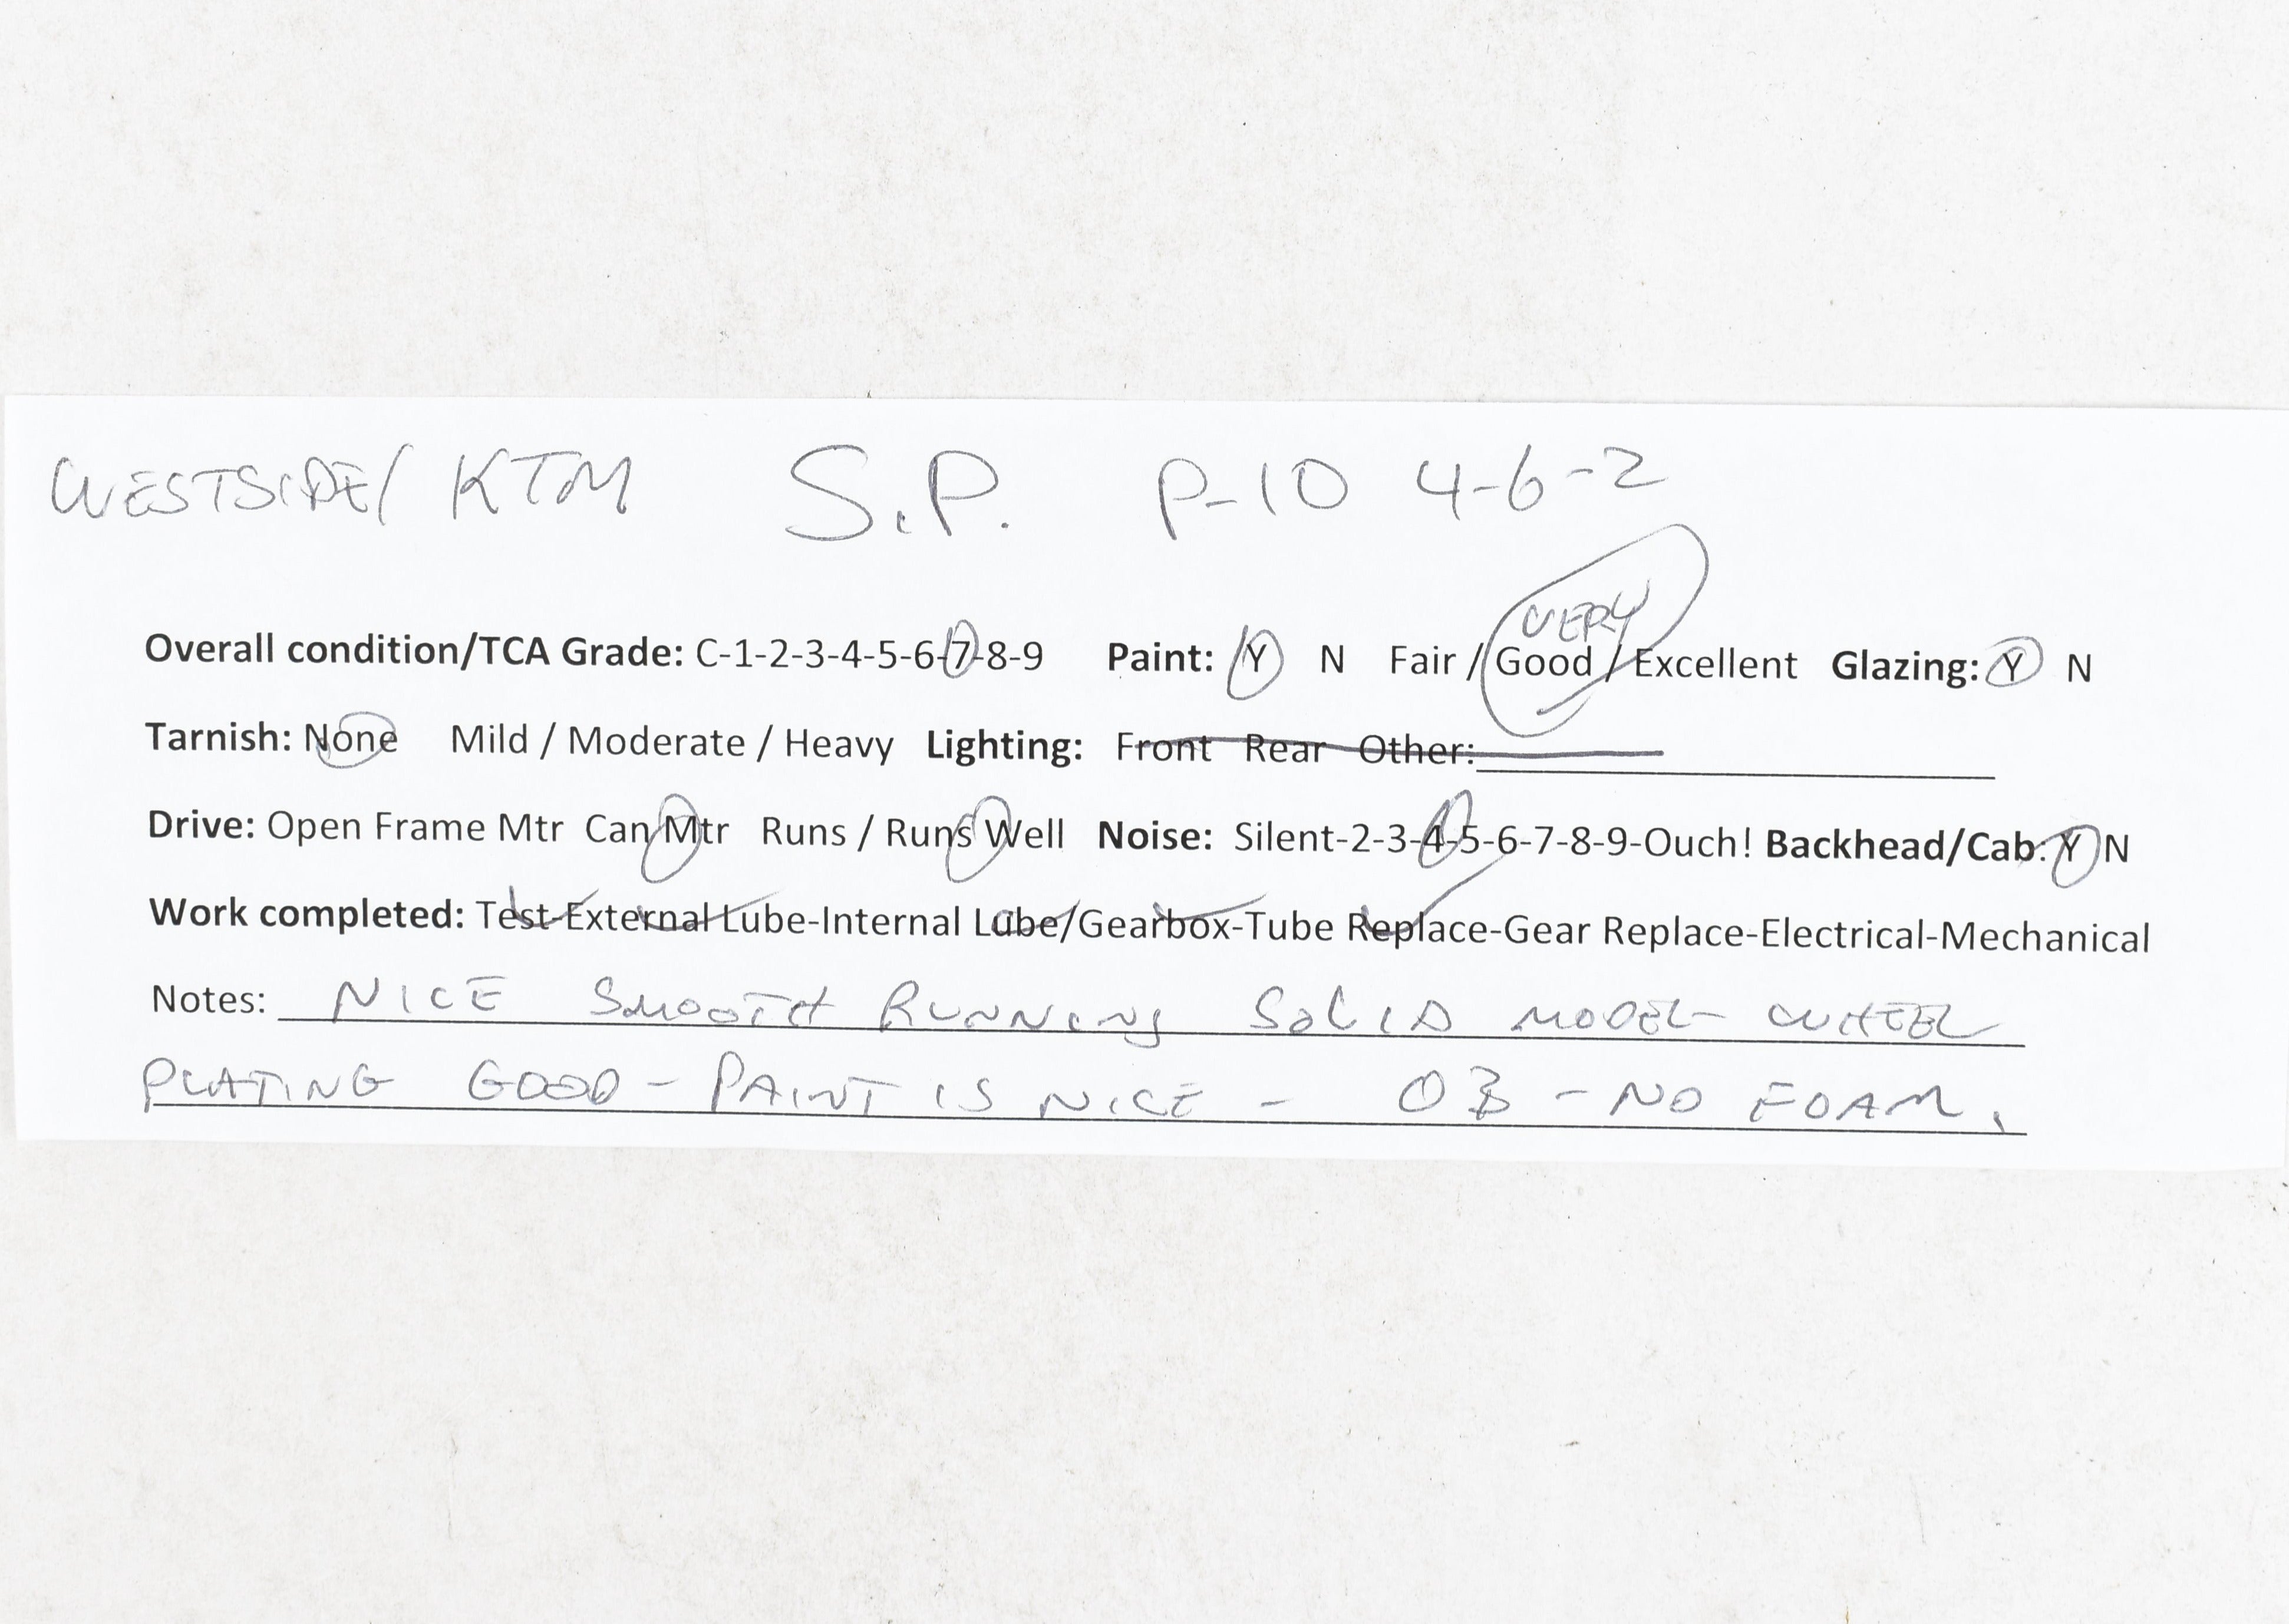 WESTSIDE/ KTM S.P. P-10 4-6-2
VERY
Overall condition/TCA Grade: C-1-2-3-4-5-6-7-8-9 Paint: Y N Fair / Good / Excellent Glazing: Y N
Tarnish: None Mild / Moderate / Heavy Lighting: Front Rear Other:
Drive: Open Frame Mtr Can Mtr Runs / Runs Well Noise: Silent-2-3-4-5-6-7-8-9-Ouch! Backhead/Cab: Y N
Work completed: Test-External Lube-Internal Lube/Gearbox-Tube Replace-Gear Replace-Electrical-Mechanical
Notes: NICE SMOOTH RUNNING SOLID MODEL- WHEEL
PLATING GOOD - PAINT IS NICE - OB - NO FOAM.